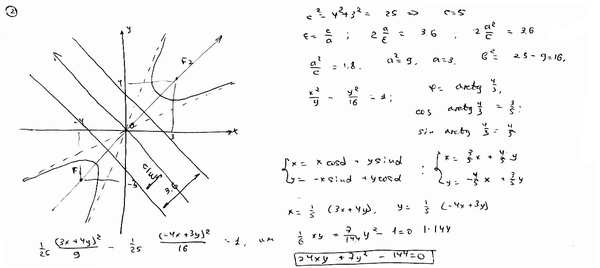 2
y
F2
4
-4
0
3
x
F1
-3
3.6
c² = 4² + 3² = 25 ⇒ c = 5
ε = c/a ; 2 a/ε = 3.6 , 2 a²/c = 3.6
a²/c = 1.8. a² = 9, a = 3, b² = 25 - 9 = 16,
x²/9 - y²/16 = 1; φ = arctg 4/3,
cos arctg 4/3 = 3/5;
sin arctg 4/3 = 4/5
{x = x cosα + y sinα : {x = 3/5 x + 4/5 y
y = -x sinα + y cosα y = -4/5 x + 3/5 y
x = 1/5 (3x + 4y), y = 1/5 (-4x + 3y)
1/25 (3x + 4y)²/9 - 1/25 (-4x + 3y)²/16 = 1, или 1/6 xy + 7/144 y² - 1 = 0 | · 144
24xy + 7y² - 144 = 0